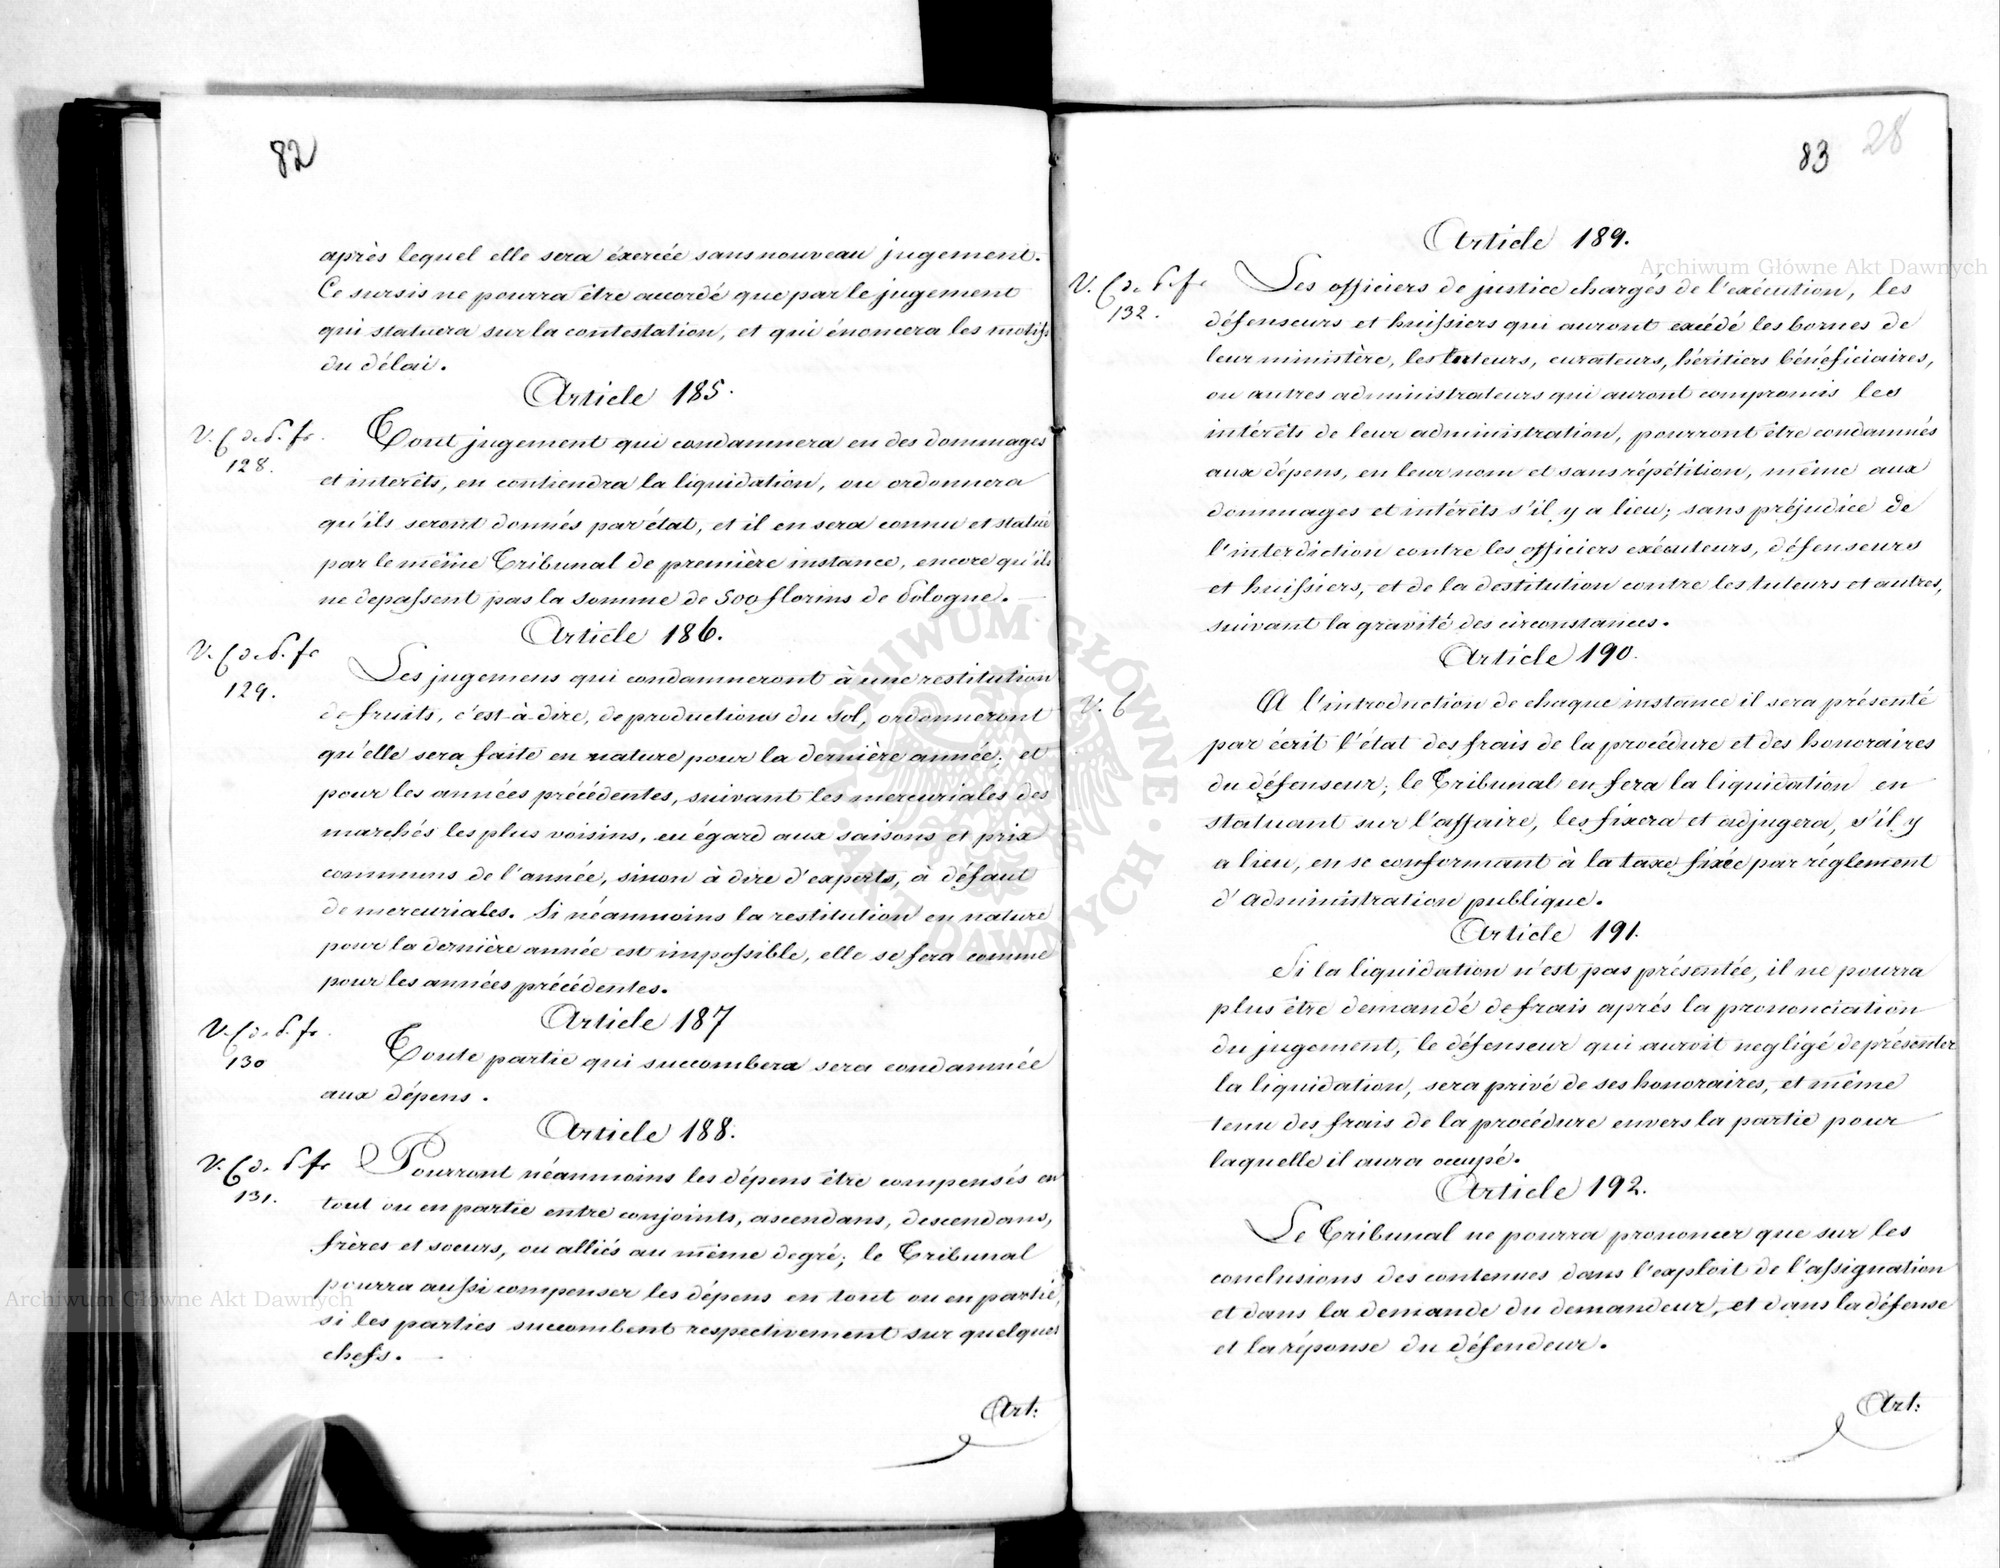 82
après lequel elle sera éxercée sans nouveau jugement.
Ce sursis ne pourra être accordé que par le jugement
qui statuera sur la contestation, et qui énoncera les motifs
du délai.
Article 185.
V. C. de P. fr.
128.
Tout jugement qui condamnera en des dommages
et interêts, en contiendra la liquidation, ou ordonnera
qu'ils seront donnés par état, et il en sera connu et statué
par le même Tribunal de première instance, encore qu'ils
ne depassent pas la somme de 500 florins de Pologne.
Article 186.
V. C. de P. fr
129.
Les jugemens qui condamneront à une restitution
de fruits, c'est-à-dire, de productions du sol, ordonneront
qu'elle sera faite en nature pour la dernière année; et
pour les années précédentes, suivant les mercuriales des
marchés les plus voisins, eu égard aux saisons et prix
communs de l'année, sinon à dire d'experts, à défaut
de mercuriales. Si néanmoins la restitution en nature
pour la dernière année est impossible, elle se fera comme
pour les années précédentes.
Article 187
V. C. de P. fr.
130
Toute partie qui succombera sera condamnée
aux dépens.
Article 188.
V. C. de P. fr
131.
Pourront néanmoins les dépens être compensés en
tout ou en partie entre conjoints, ascendans, descendans,
frères et soeurs, ou alliés au même degré; le Tribunal
pourra aussi compenser les dépens en tout ou en partie,
si les parties succombent respectivement sur quelques
chefs.
Art:
83
28
Article 189.
V. C. de P. fr
132.
Les officiers de justice chargés de l'exécution, les
défenseurs et huissiers qui auront excédé les bornes de
leur ministère, les tuteurs, curateurs, héritiers bénéficiaires,
ou autres administrateurs qui auront compromis les
intérêts de leur administration, pourront être condamnés
aux dépens, en leur nom et sans répétition, même aux
dommages et intérêts s'il y a lieu; sans préjudice de
l'interdiction contre les officiers exécuteurs, défenseurs
et huissiers, et de la destitution contre les tuteurs et autres,
suivant la gravité des circonstances.
Article 190.
V. C
A l'introduction de chaque instance il sera présenté
par écrit l'état des frais de la procédure et des honoraires
du défenseur; le Tribunal en fera la liquidation en
statuant sur l'affaire, les fixera et adjugera, s'il y
a lieu, en se conformant à la taxe fixée par réglement
d'administration publique.
Article 191.
Si la liquidation n'est pas présentée, il ne pourra
plus être demandé de frais après la prononciation
du jugement, le défenseur qui auroit negligé de présenter
la liquidation, sera privé de ses honoraires, et même
tenu des frais de la procédure envers la partie pour
laquelle il aura occupé.
Article 192.
Le Tribunal ne pourra prononcer que sur les
conclusions des contenues dans l'exploit de l'assignation
et dans la demande du demandeur, et dans la défense
et la réponse du défendeur.
Art:
Archiwum Główne Akt Dawnych
Archiwum Główne Akt Dawnych
ARCHIWUM GŁÓWNE AKT DAWNYCH